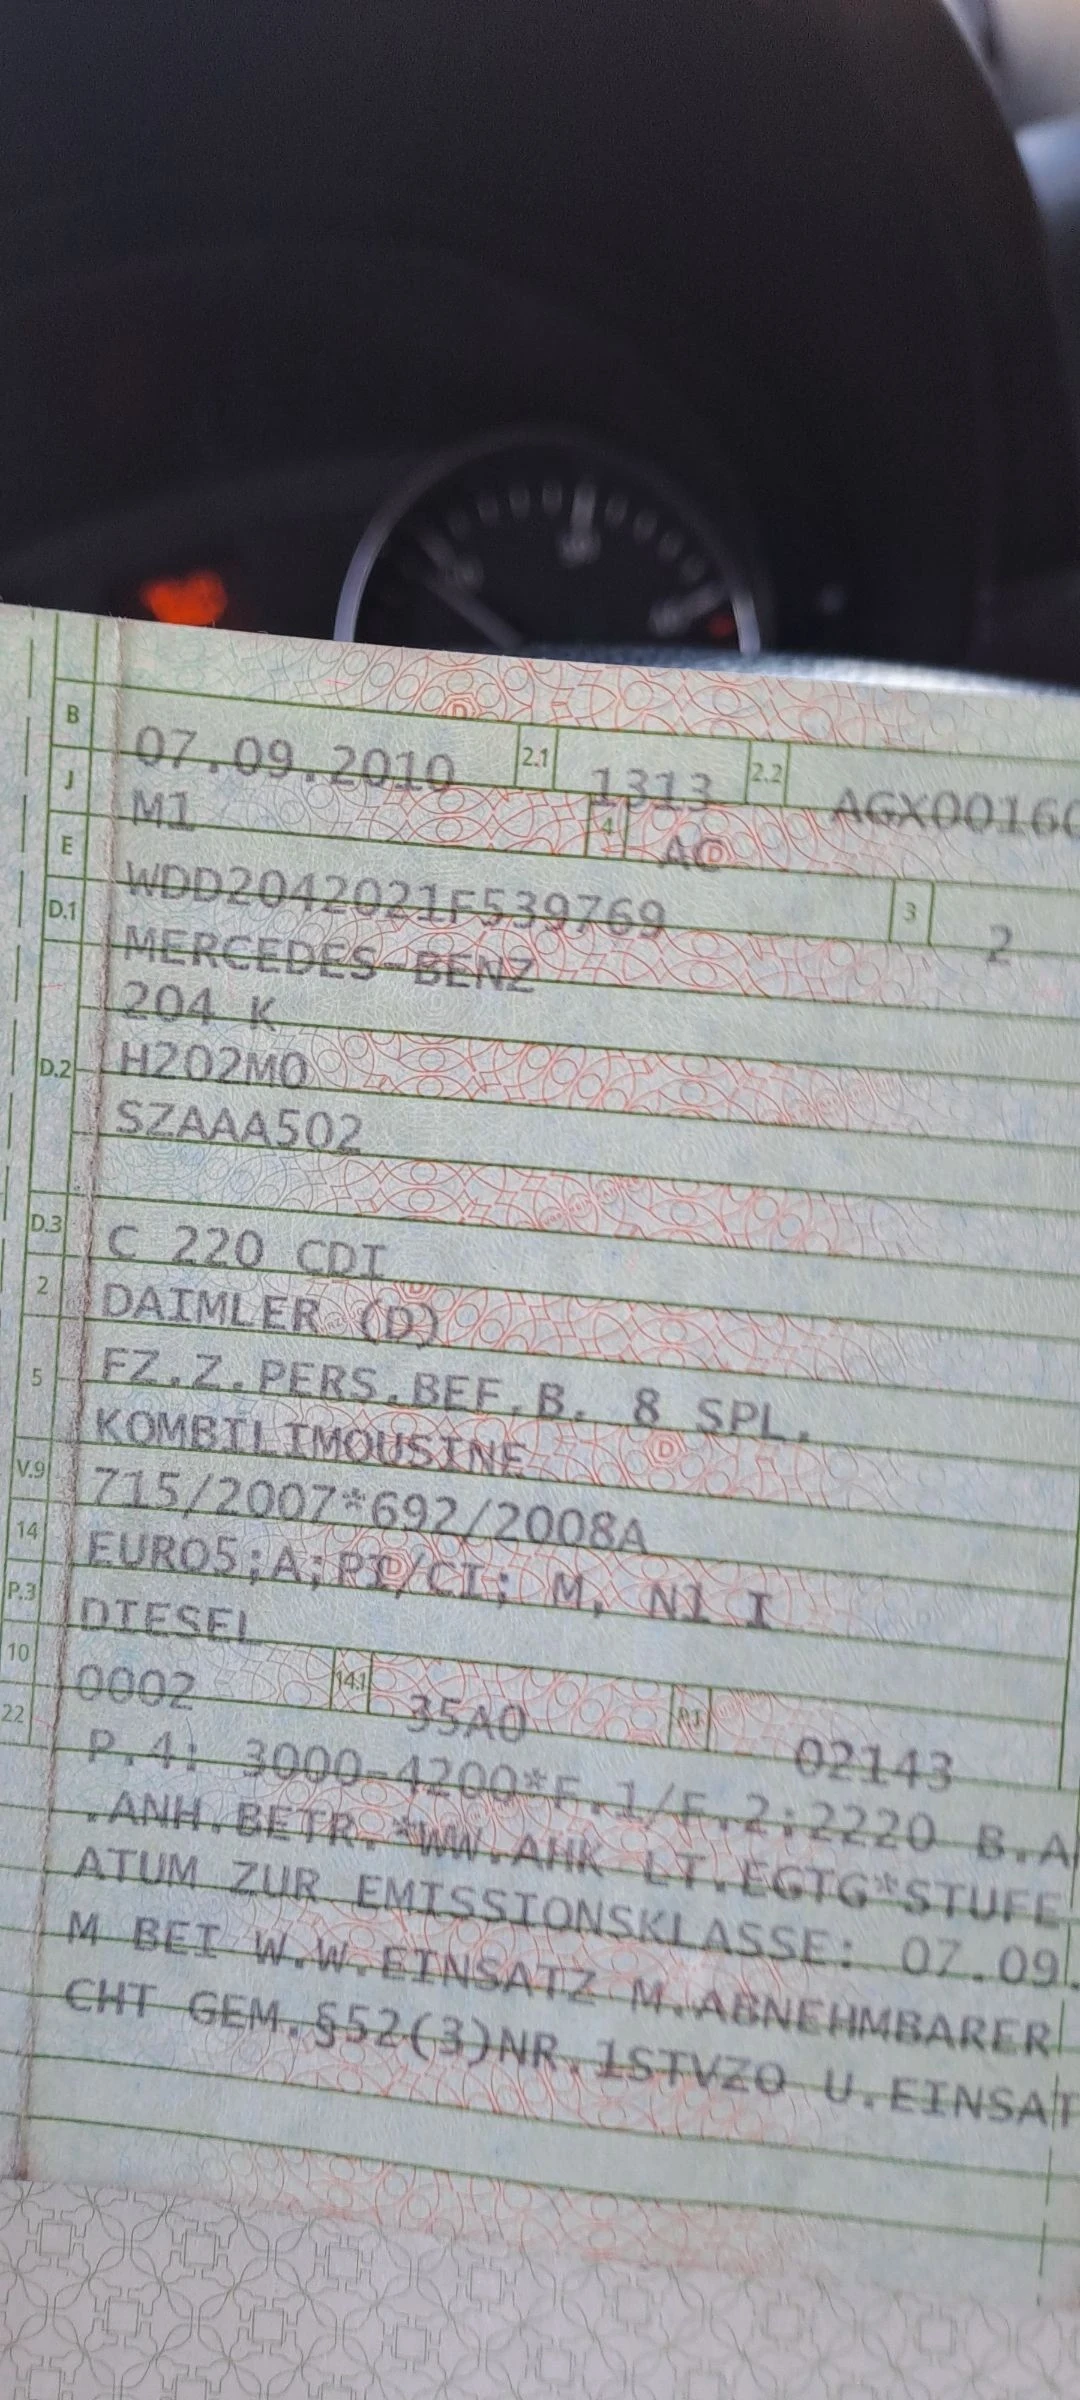 B 07.09.2010 2.1 1313 2.2 AGX00160
J M1 4 AC
E WDD2042021F539769 3 2
D.1 MERCEDES-BENZ
204 K
D.2 H202M0
SZAAA502
D.3 C 220 CDI
2 DAIMLER (D)
5 FZ.Z.PERS.BEF.B. 8 SPL.
KOMBILIMOUSINE
V.9 715/2007*692/2008A
14 EURO5;A;PI/CI; M, N1 I
P.3 DIESEL
10 0002 14.1 35A0 P.1 02143
22 P.4: 3000-4200*F.1/F.2:2220 B.A
.ANH.BETR.*WW.AHK LT.EGTG*STUFE
ATUM ZUR EMISSIONSKLASSE: 07.09.
M BEI W.W.EINSATZ M.ABNEHMBARER
CHT GEM.§52(3)NR.1STVZO U.EINSAT